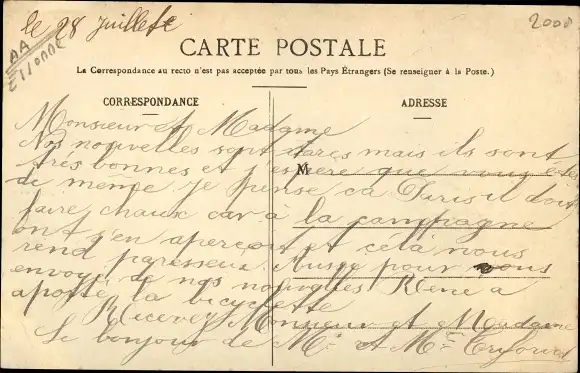 le 28 Juillet
2000
AA
CARTE POSTALE
La Correspondance au recto n'est pas acceptée par tous les Pays Étrangers (Se renseigner à la Poste.)
CORRESPONDANCE
ADRESSE
M
Monsieur et Madame
Nos nouvelles sont rares mais ils sont
très bonnes et j'espère que vous êtes
de meme je pense ca Paris il doit
faire chaux car à la campagne
ont s'en aperçoit et cela nous
rend paresseux Aussi pour vous
envoyé de nos nouvelles Rene a
aporté la bicyclette
Recevez Monsieur et Madame
le bonjour de Mr et Me